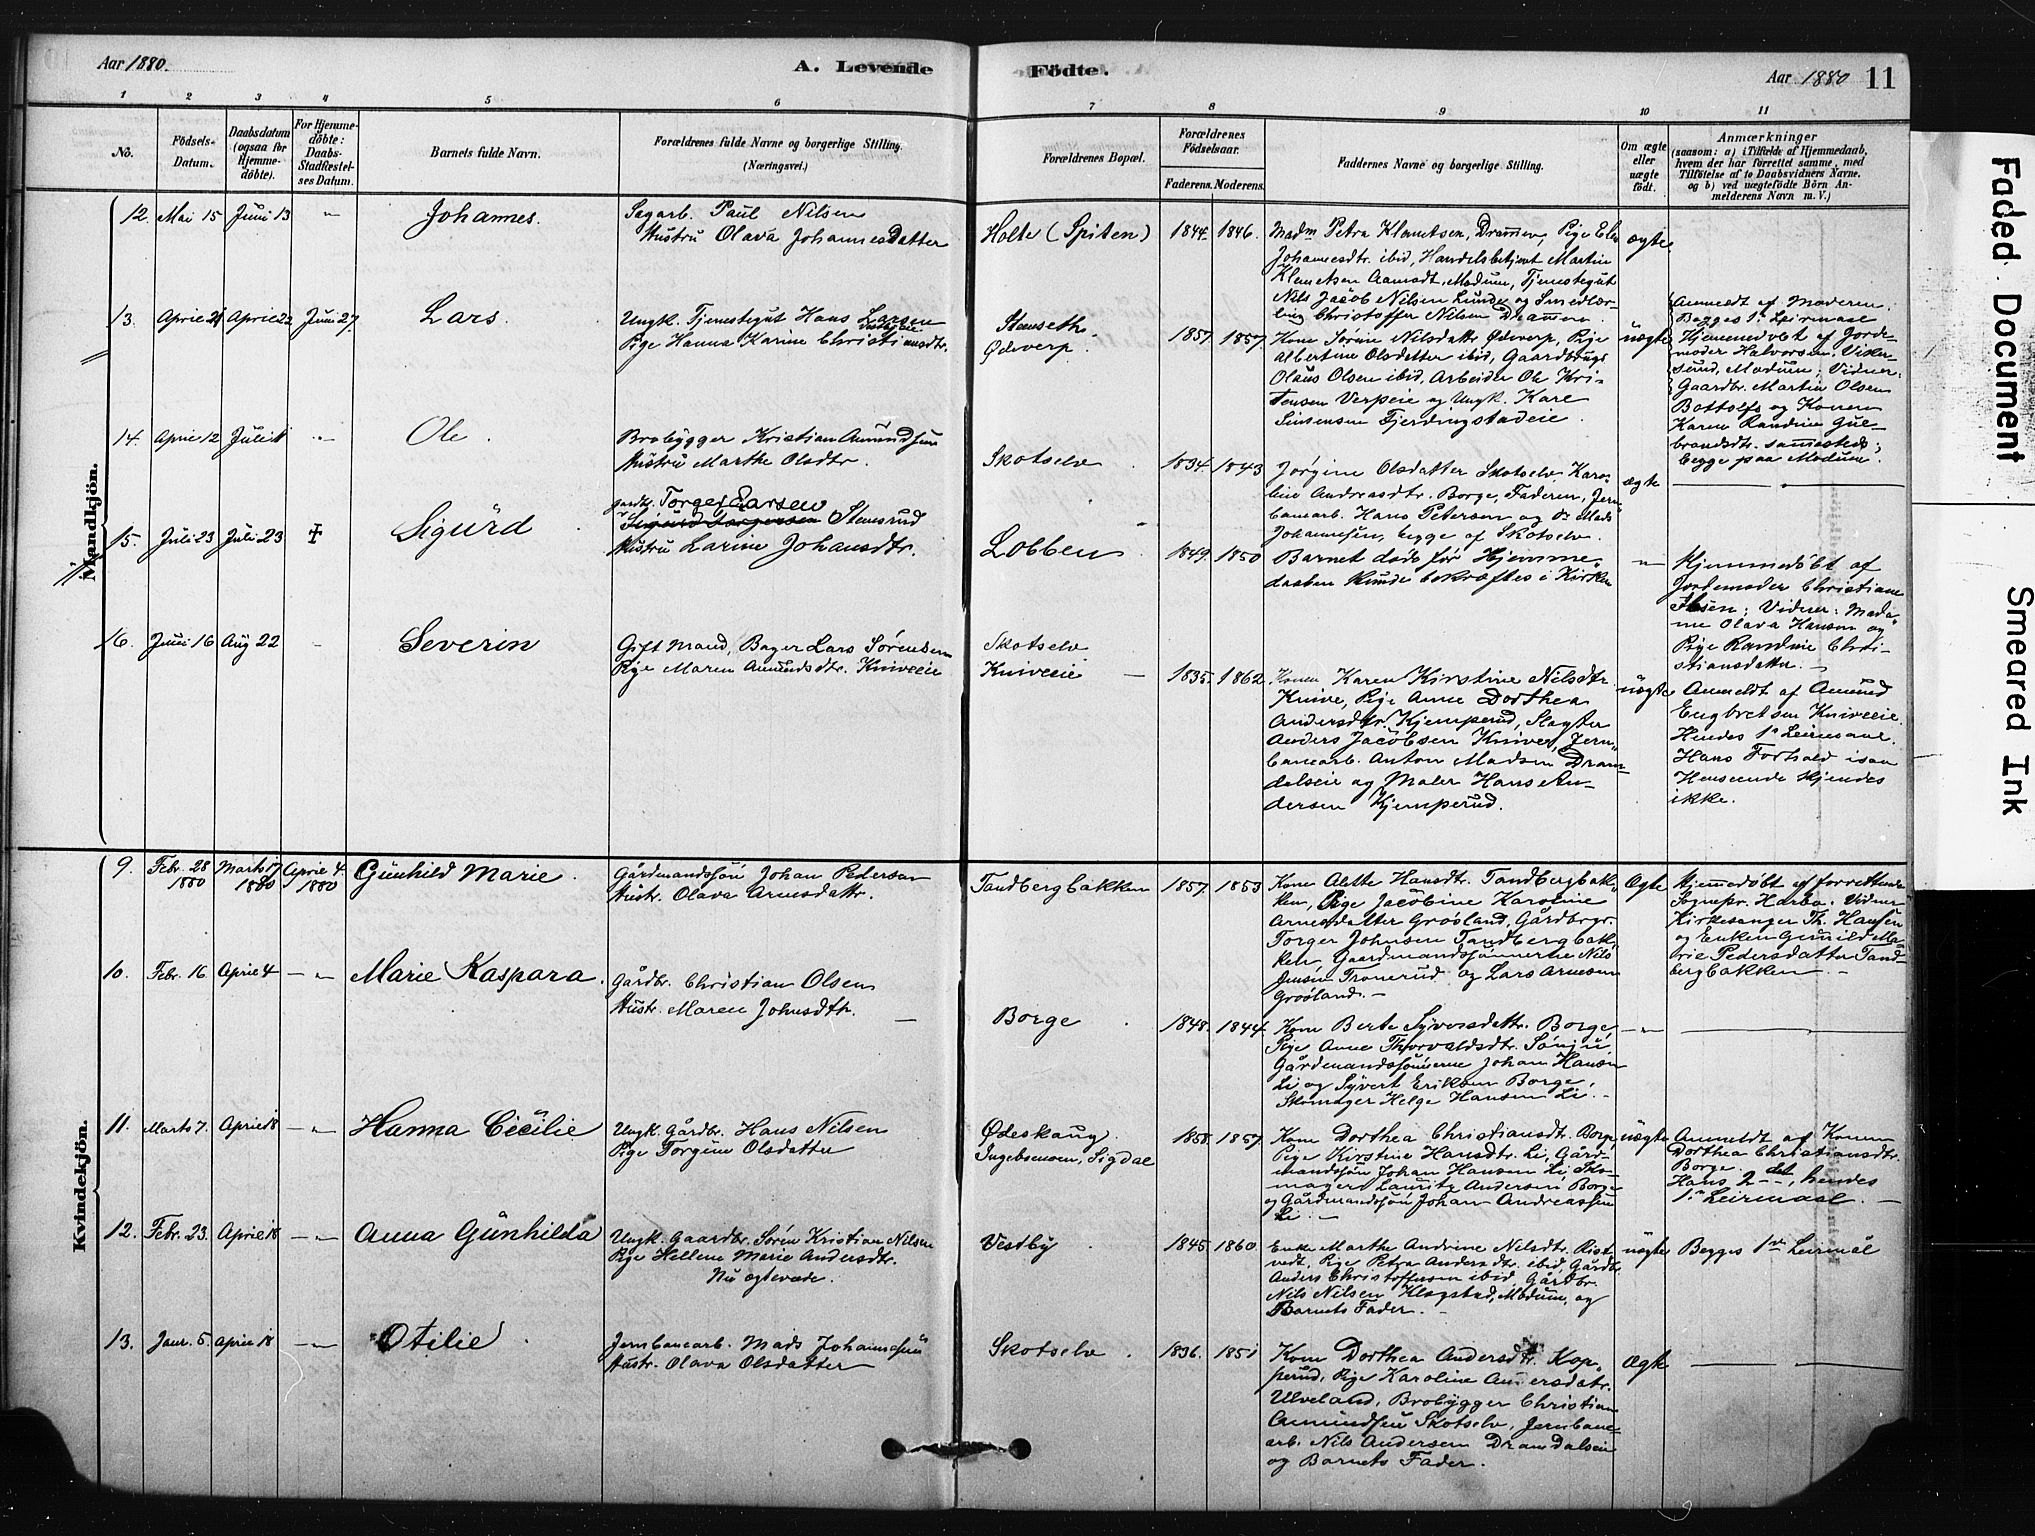 Aar 1880.
A. Levende
Födte.
Aar 1880
11
1 2 3 4 5 6 7 8 9 10 11
No.
Födsels-
Datum.
Daabsdatum
(ogsaa for
Hjemme-
döbte).
For Hjemme-
döbte:
Daabs-
Stadfæstel-
ses Datum.
Barnets fulde Navn.
Forældrenes fulde Navne og borgerlige Stilling.
(Næringsvei.)
Forældrenes Bopæl.
Forældrenes
Födselsaar.
Faderens. Moderens.
Faddernes Navne og borgerlige Stilling.
Om ægte
eller
uægte
födt.
Anmærkninger
(saasom: a) i Tilfælde af Hjemmedaab,
hvem der har forrettet samme, med
Tilföielse af to Daabsvidners Navne.
og b) ved uægtefödte Börn An-
melderens Navn m. V.)
Mandkjön.
12. Mai 15 Juni 13 "
Johannes.
Sagarb. Paul Nilsen
Hustru Olava Johannesdatter
Holte (Spiten)
1844. 1846.
Madm Petra Klemetsen, Drammen, Pige
Johannesdtr. ibid, Handelsbetjent Martin
Klemetsen Aamodt, Modum, Tjenestegut
Nils Jacob Nilsen Lunde og Smedlær-
ling Christoffer Nilsen Drammen.
ægte
13. April April 22 Juni 27
Lars.
Ungk. Tjenestegut Hans Larsen
Pige Hanna Karine Christiansdtr.
Stenseth
Ødeverp.
1857 1857
Kone Sørine Nilsdatter Ødeverp, Pige
Albertine Olsdatter ibid, Gaardbrugr
Olaus Olsen ibid, Arbeider Ole Kri-
stensen Verpeie og Ungk. Karl
Simensen Fjerdingstadeie.
uægte
Anmeldt af Moderen.
Begges 1ste Leirmaal
Hjemmedøbt af Jorde-
moder Halvorsen, Viker-
sund, Modum; Vidner:
Gaardbr. Martin Olsen
Bottolfs og Konen
Karen Randine Gul-
brandsdtr. sammesteds;
begge paa Modum.
14. April 12 Juli 11 "
Ole.
Brobygger Kristian Amundsen
Hustru Marthe Olsdtr.
Skotselv
1834. 1843
Jørgine Olsdatter Skotselv, Karo-
line Andreasdtr. Borge, Faderen, Jern-
banearb. Hans Petersen og do Mads
Johannesen, begge af Skotselv.
ægte
15. Juli 23 Juli 23 ‡
Sigurd
gardbr. Torger Larsen
Stensrud
Hustru Larine Johansdtr.
Lobben
1849. 1850
Barnet døde før Hjemme-
daaben kunde bekræftes i Kirken
"
Hjemmedøbt af
Jordemoder Christiane
Ibsen; Vidner: Mada-
me Olava Hansen og
Pige Randine Chri-
stiansdatter.
16. Juni 16 Aug 22
Severin
Gift Mand, Bager Lars Sørensen
Pige Maren Amundsdtr. Kniveeie
Skotselv
Kniveeie
1835. 1862
Konen Karen Kirstine Nilsdtr.
Knive, Pige Anne Dorthea
Andersdtr. Kjemperud, Slagter
Anders Jacobsen Knive, Jern-
banearb. Anton Madsen Dram-
dalseie og Maler Hans An-
dersen Kjemperud.
uægte
Anmeldt af Amund
Engbretsen Kniveeie.
Hendes 1ste Leirmaal.
Hans Forhold i saa
Henseende kjendes
ikke.
Kvindekjön.
9. Febr. 28 1880 Marts 17 1880 April 4 1880
Gunhild Marie.
Gårdmandssøn Johan Pedersen
Hustr. Olava Arnesdattr.
Tandbergbakken
1857. 1853
Kone Alette Hansdtr. Tandbergbak-
ken, Pige Jacobine Karoline
Arnesdatter Grøsland, Gårdbrgr.
Torger Johnsen Tandbergbak-
ken, Gaardmandssønnerne Nils
Jensen Tronerud og Lars Arnesen
Grøsland.-
Ægte
Hjemmedøbt af forrettende
Sognepr. Harbo. Vidner
Kirkesanger Th. Hansen
og Enken Gunild Ma-
rie Pedersdatter Tand-
bergbakken. -
10. Febr. 16 April 4 - " -
Marie Kaspara.
Gårdbr. Christian Olsen
Hustr. Maren Johnsdtr.
Borge
1848. 1844
Kone Berte Syversdattr. Borge,
Pige Anne Thorvaldsdtr. Sønju
Gårdmandssønnerne Johan Hansen
Li og Syvert Eriksen Borge,
Skomager Helge Hansen Li.-
"
11. Marts 7. April 18 - " -
Hanna Cecilie
Ungk. Gårdbr. Hans Nilsen
Pige Torgine Olsdatter
Ødeskaug.
Ingebsmoen, Sigdal
1858. 1857
Kone Dorthea Christiansdtr. Borge,
Pige Kirstine Hansdtr. Li, Gård-
mandssøn Johan Hansen Li, Sko-
mager Lauritz Andersen Borge
og Gårdmandssøn Johan Andreassen
Li.-
uægte
Anmeldt af Konen
Dorthea Christiansdtr.
Borge.
Hans 2det, hendes
1ste Leirmaal.
12. Febr. 23. April 18 - " -
Anna Gunhilda
Ungk. Gaardbr. Søren Kristian Nilsen
Pige Hellene Marie Andersdtr.
Nu ægteviede.
Vestby
1845 1860.
Enke Marthe Andrine Nilsdtr. Rist-
vedt, Pige Petra Andersdtr. ibid, Gårdbr.
Anders Christoffersen ibid, Gårdbr.
Nils Nilsen Klogstad, Modum, og
Barnets Fader.-
uægte
Begges 1ste Leirmål
13. Janr. 5. April 18 - " -
Otilie
Jernbanearb. Mads Johannesen
Hustr. Olava Olsdatter
Skotselv.
1836. 1851
Kone Dorthea Andersdtr. Kop-
perud, Pige Karoline Andersdatr.
Ulveland, Brobygger Christian
Amundsen Skotselv, Jernbane-
arb. Nils Andersen Dramdalseie
og Barnets Fader.
Ægte
Faded Document
Smeared Ink